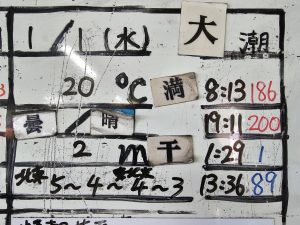 1/1(水) 大潮
20℃ 満 8:13 186
曇/晴 19:11 200
2m 干 1:29 1
北東 5~4~ 東北東 4~3 13:36 89